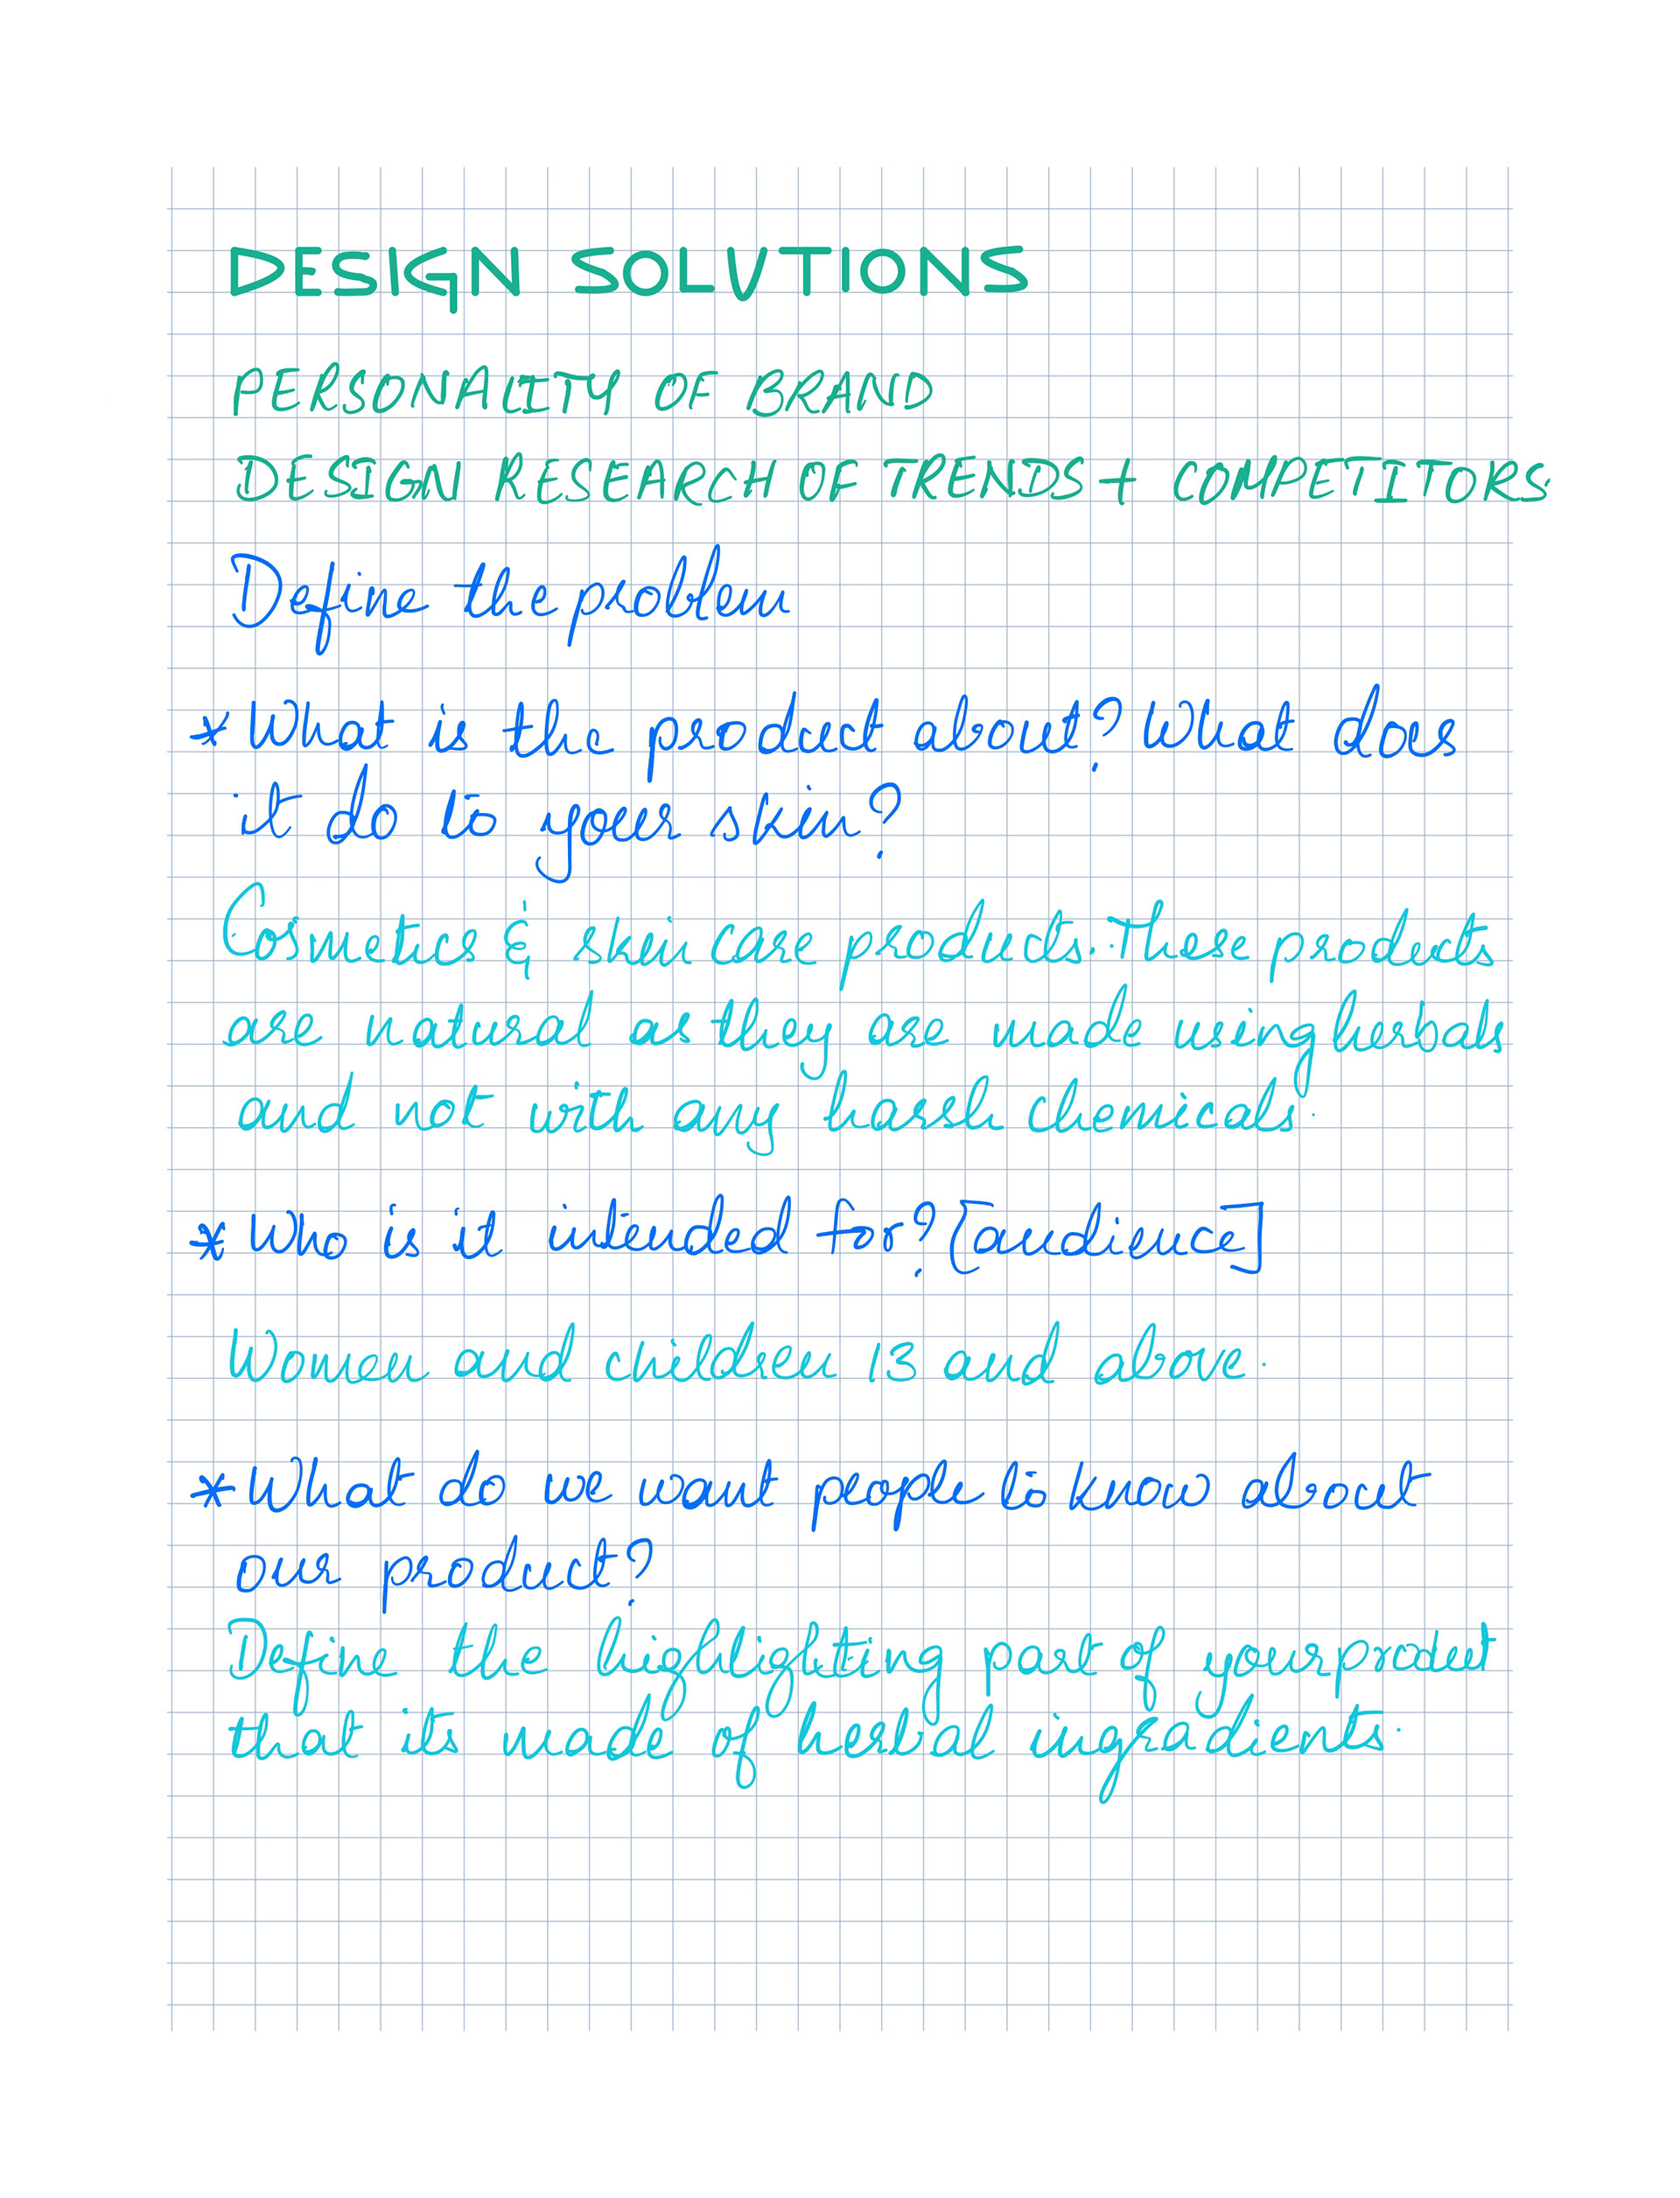 DESIGN SOLUTIONS
PERSONALITY OF BRAND
DESIGN RESEARCH OF TRENDS + COMPETITORS.
Define the problem
* What is the product about? What does
it do to your skin?
Cosmetics & skin care products. These products
are natural as they are made using herbals
and not with any harsh chemicals.
* Who is it intended for? [audience]
Women and children 13 and above.
* What do we want people to know about
our product?
Define the highlighting part of your product
that its made of herbal ingredients.